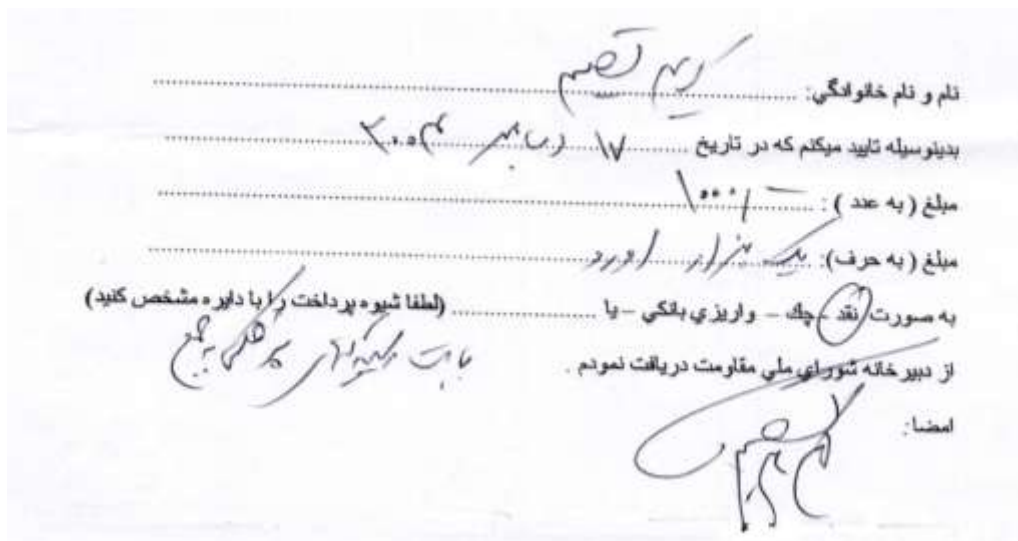 نام و نام خانوادگي: كريم قصيم
بدينوسيله تاييد ميكنم كه در تاريخ ۱۷ دسامبر ۲۰۰۴
مبلغ ( به عدد ) : ۱۰۰۰
مبلغ ( به حرف): يك هزار اورو
به صورت نقد - چك - واريزي بانكي - يا (لطفا شيوه پرداخت را با دايره مشخص كنيد)
بابت
از دبيرخانه شوراي ملي مقاومت دريافت نمودم .
امضا: